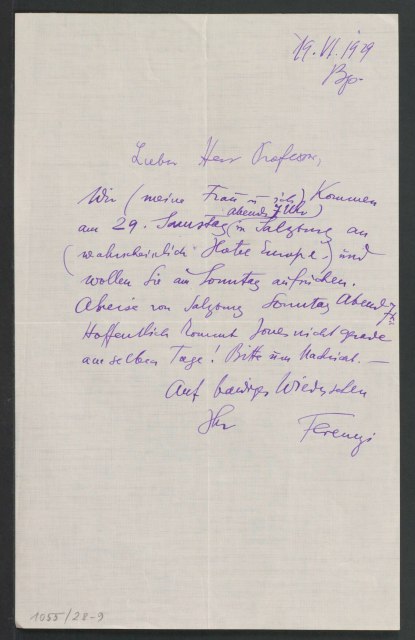 19. VI. 1929
Bp.
Lieber Herr Professor,
Wir (meine Frau u ich) kommen
abends 7 Uhr)
am 29. Samstag (in Salzburg an
(wahrscheinlich Hotel Europe) und
wollen Sie am Sonntag aufsuchen.
Abreise von Salzburg Sonntag Abend
7h
Hoffentlich kommt Jones nicht gerade
am selben Tage! Bitte um Nachricht. —
Auf baldiges Wiedersehen
Ihr Ferenczi
1055/28-9